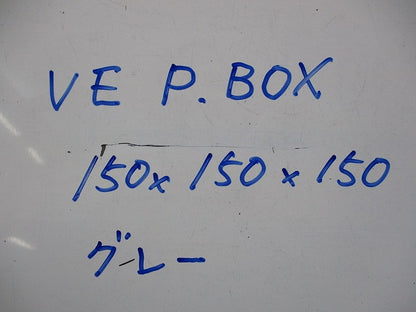 VE P.BOX
150x 150 x 150
グレー